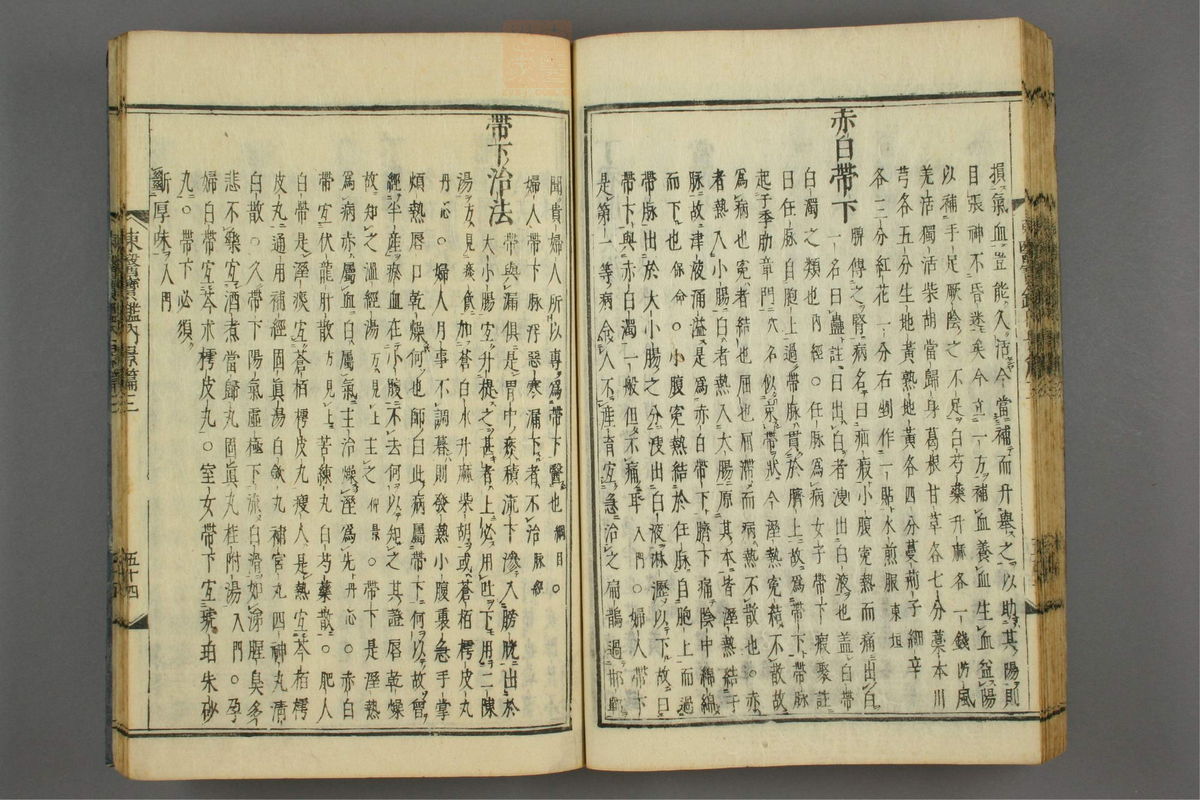 損氣血豈能久活今當補而升擧之以助其陽則
目張神不昏迷矣今立一方補血養血生血益陽
以補手足厥陰之不足白芍藥升麻各一錢防風
羌活獨活柴胡當歸身葛根甘草各七分藁本川
芎各五分生地黃熟地黃各四分蔓荊子細辛
各三分紅花一分右剉作一貼水煎服東垣
赤白帶下
脾傳之腎病名曰疝瘕小腹寃熱而痛出白
一名曰蠱註曰出白者溲出白液也盖白帶
白濁之類也內經○任脉爲病女子帶下瘕聚註
曰任脉自胞上過帶脉貫於臍上故爲帶下帶脉
起于季肋章門穴名似束帶狀今溼熱寃積不散故
爲病也寃者結也屈也屈滯而病熱不散也○赤
者熱入小腸白者熱入大腸原其本皆溼熱結于
脉故津液涌溢是爲赤白帶下臍下痛陰中綿綿
而下也保命○小腹寃熱結於任脉自胞上而過
帶脉出於大小腸之分溲出白液淋瀝以下故曰
帶下與赤白濁一般但不痛耳入門○婦人帶下
是第一等病令人不產育宜急治之扁鵲過邯鄲
聞貴婦人所以專爲帶下醫也綱目○
婦人帶下脉浮惡寒漏下者不治脉經
帶下治法
帶與漏俱是胃中痰積流下滲入膀胱出於
大小腸宜升提之甚者上必用吐下用二陳
湯方見痰飮加蒼白朮升麻柴胡或蒼栢樗皮丸
丹心○婦人月事不調暮則發熱小腹裏急手掌
煩熱唇口乾燥何也師曰此病屬帶下何以故曾
經半產瘀血在小腹不去何以知之其證唇乾燥
故知之溫經湯方見上主之仲景○帶下是溼熱
爲病赤屬血白屬氣主治燥溼爲先丹心○赤白
帶宜伏龍肝散方見上苦練丸白芍藥散○肥人
白帶是溼痰宜蒼栢樗皮丸瘦人是熱宜芩栢樗
皮丸通用補經固眞湯白斂丸補宮丸四神丸淸
白散○久帶下陽氣虛極下流白滑如涕腥臭多
悲不樂宜酒煮當歸丸固眞丸桂附湯入門○孕
婦白帶宜芩朮樗皮丸○室女帶下宜琥珀朱砂
丸○帶下必須
斷厚味入門
東醫寶鑑內景篇三
五十四